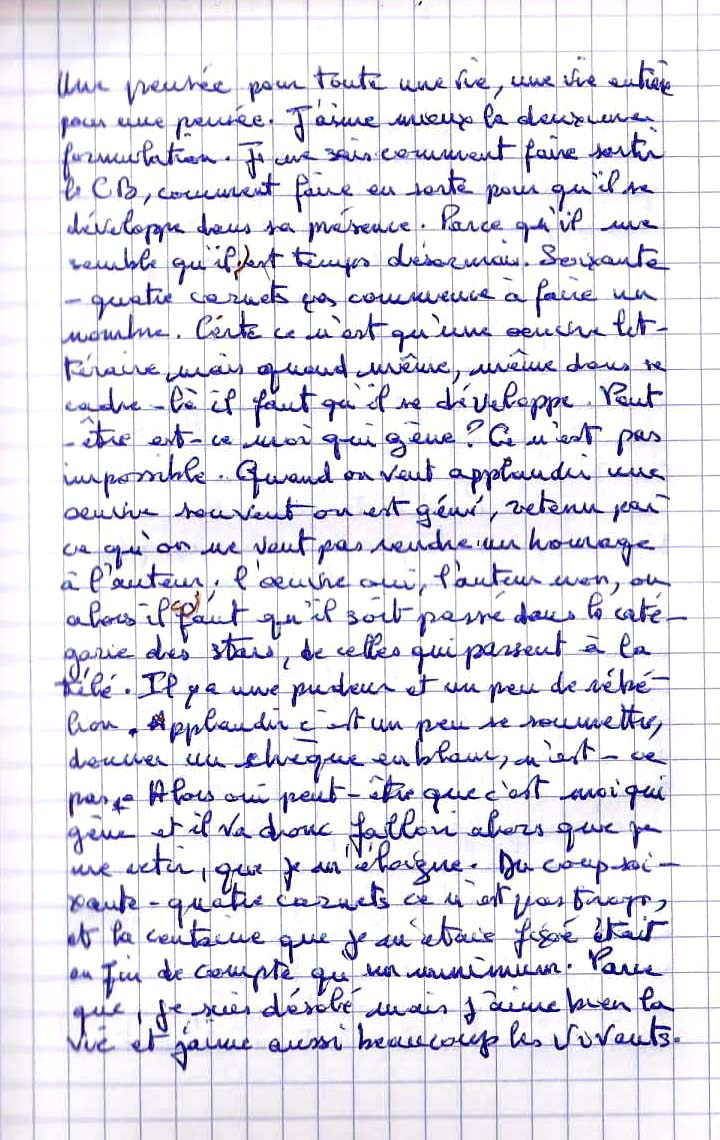 Une pensée pour toute une vie, une vie entière
pour une pensée. J'aime mieux la deuxième
formulation. Je ne sais comment faire sortir
le CB, comment faire en sorte pour qu'il se
développe dans sa présence. Parce qu'il me
semble qu'il est temps désormais. Soixante
-quatre carnets ça commence à faire un
nombre. Certe ce n'est qu'une oeuvre lit-
téraire, mais quand même, même dans ce
cadre-là il faut qu'il se développe. Peut
-être est-ce moi qui gêne? Ce n'est pas
impossible. Quand on veut applaudir une
oeuvre souvent on est géné, retenu par
ce qu'on ne veut pas rendre un homage
à l'auteur, l'oeuvre oui, l'auteur non, ou
alors il faut qu'il soit passé dans la caté-
gorie des stars, de celles qui passent à la
télé. Il y a une pudeur et un peu de rébé-
lion. Applaudir c'est un peu se soumettre,
donner un chèque en blanc, n'est-ce
pas. Alors oui peut-être que c'est moi qui
gêne et il va donc falloir alors que je
me retire, que je m'éloigne. Du coup soi-
xante-quatre carnets ce n'est pas trop,
et la centaine que je m'étais fixé était
en fin de compte qu'un minimum. Parce
que, je suis désolé mais j'aime bien la
vie et j'aime aussi beaucoup les vivants.